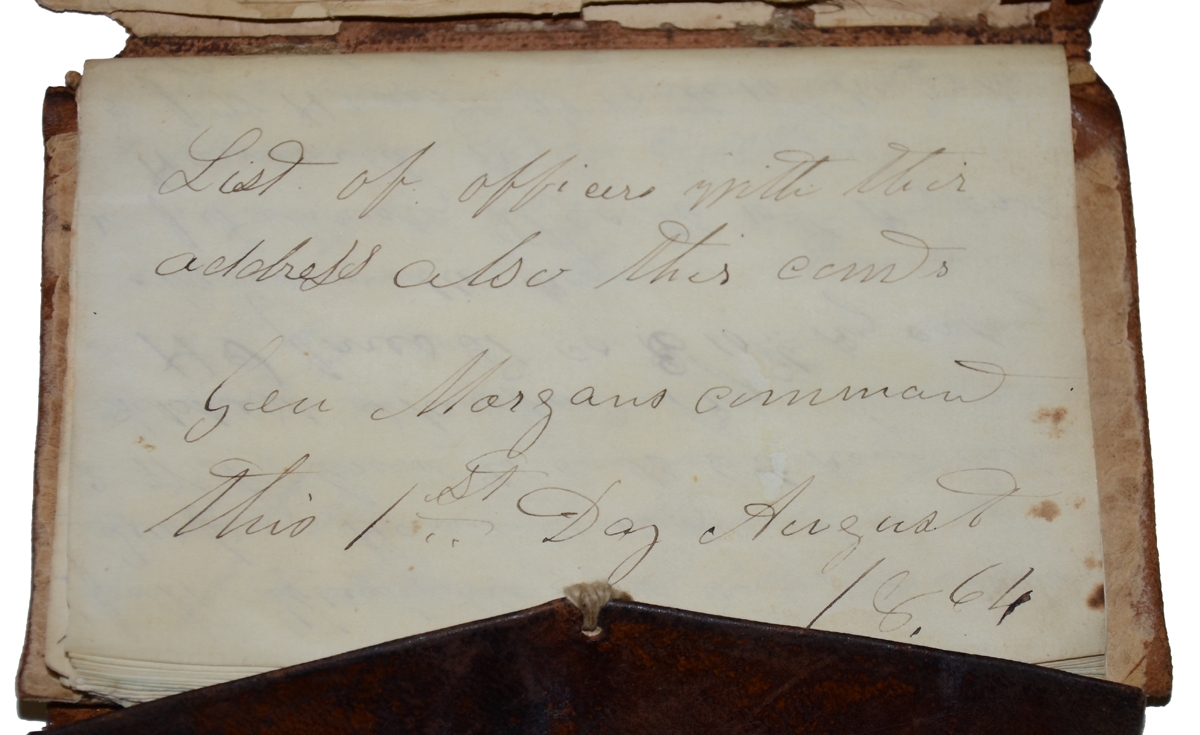 List of officers with thir
address also thir comds
Gen Morgans command
this 1st Day August
1864